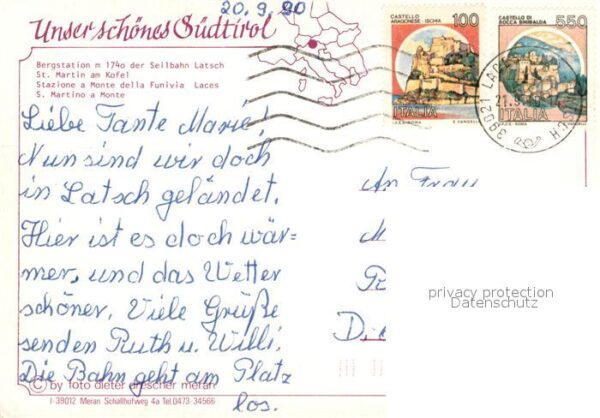 20.9.90
Unser schönes Südtirol
Bergstation m 1740 der Seilbahn Latsch
St. Martin am Kofel
Stazione a Monte della Funivia Laces
S. Martino a Monte
CASTELLO
ARAGONESE - ISCHIA
100
ITALIA
CASTELLO DI
ROCCA SINIBALDA
550
ITALIA
39021
Liebe Tante Marie!
Nun sind wir doch
in Latsch geländet.
Hier ist es doch wär=
mer, und das Wetter
schöner. Viele Grüße
senden Ruth u. Willi.
Die Bahn geht am Platz
los.
An Frau
privacy protection
Datenschutz
© by foto dieter drescher meran
I-39012 Meran Schallhofweg 4a Tel.0473-34566